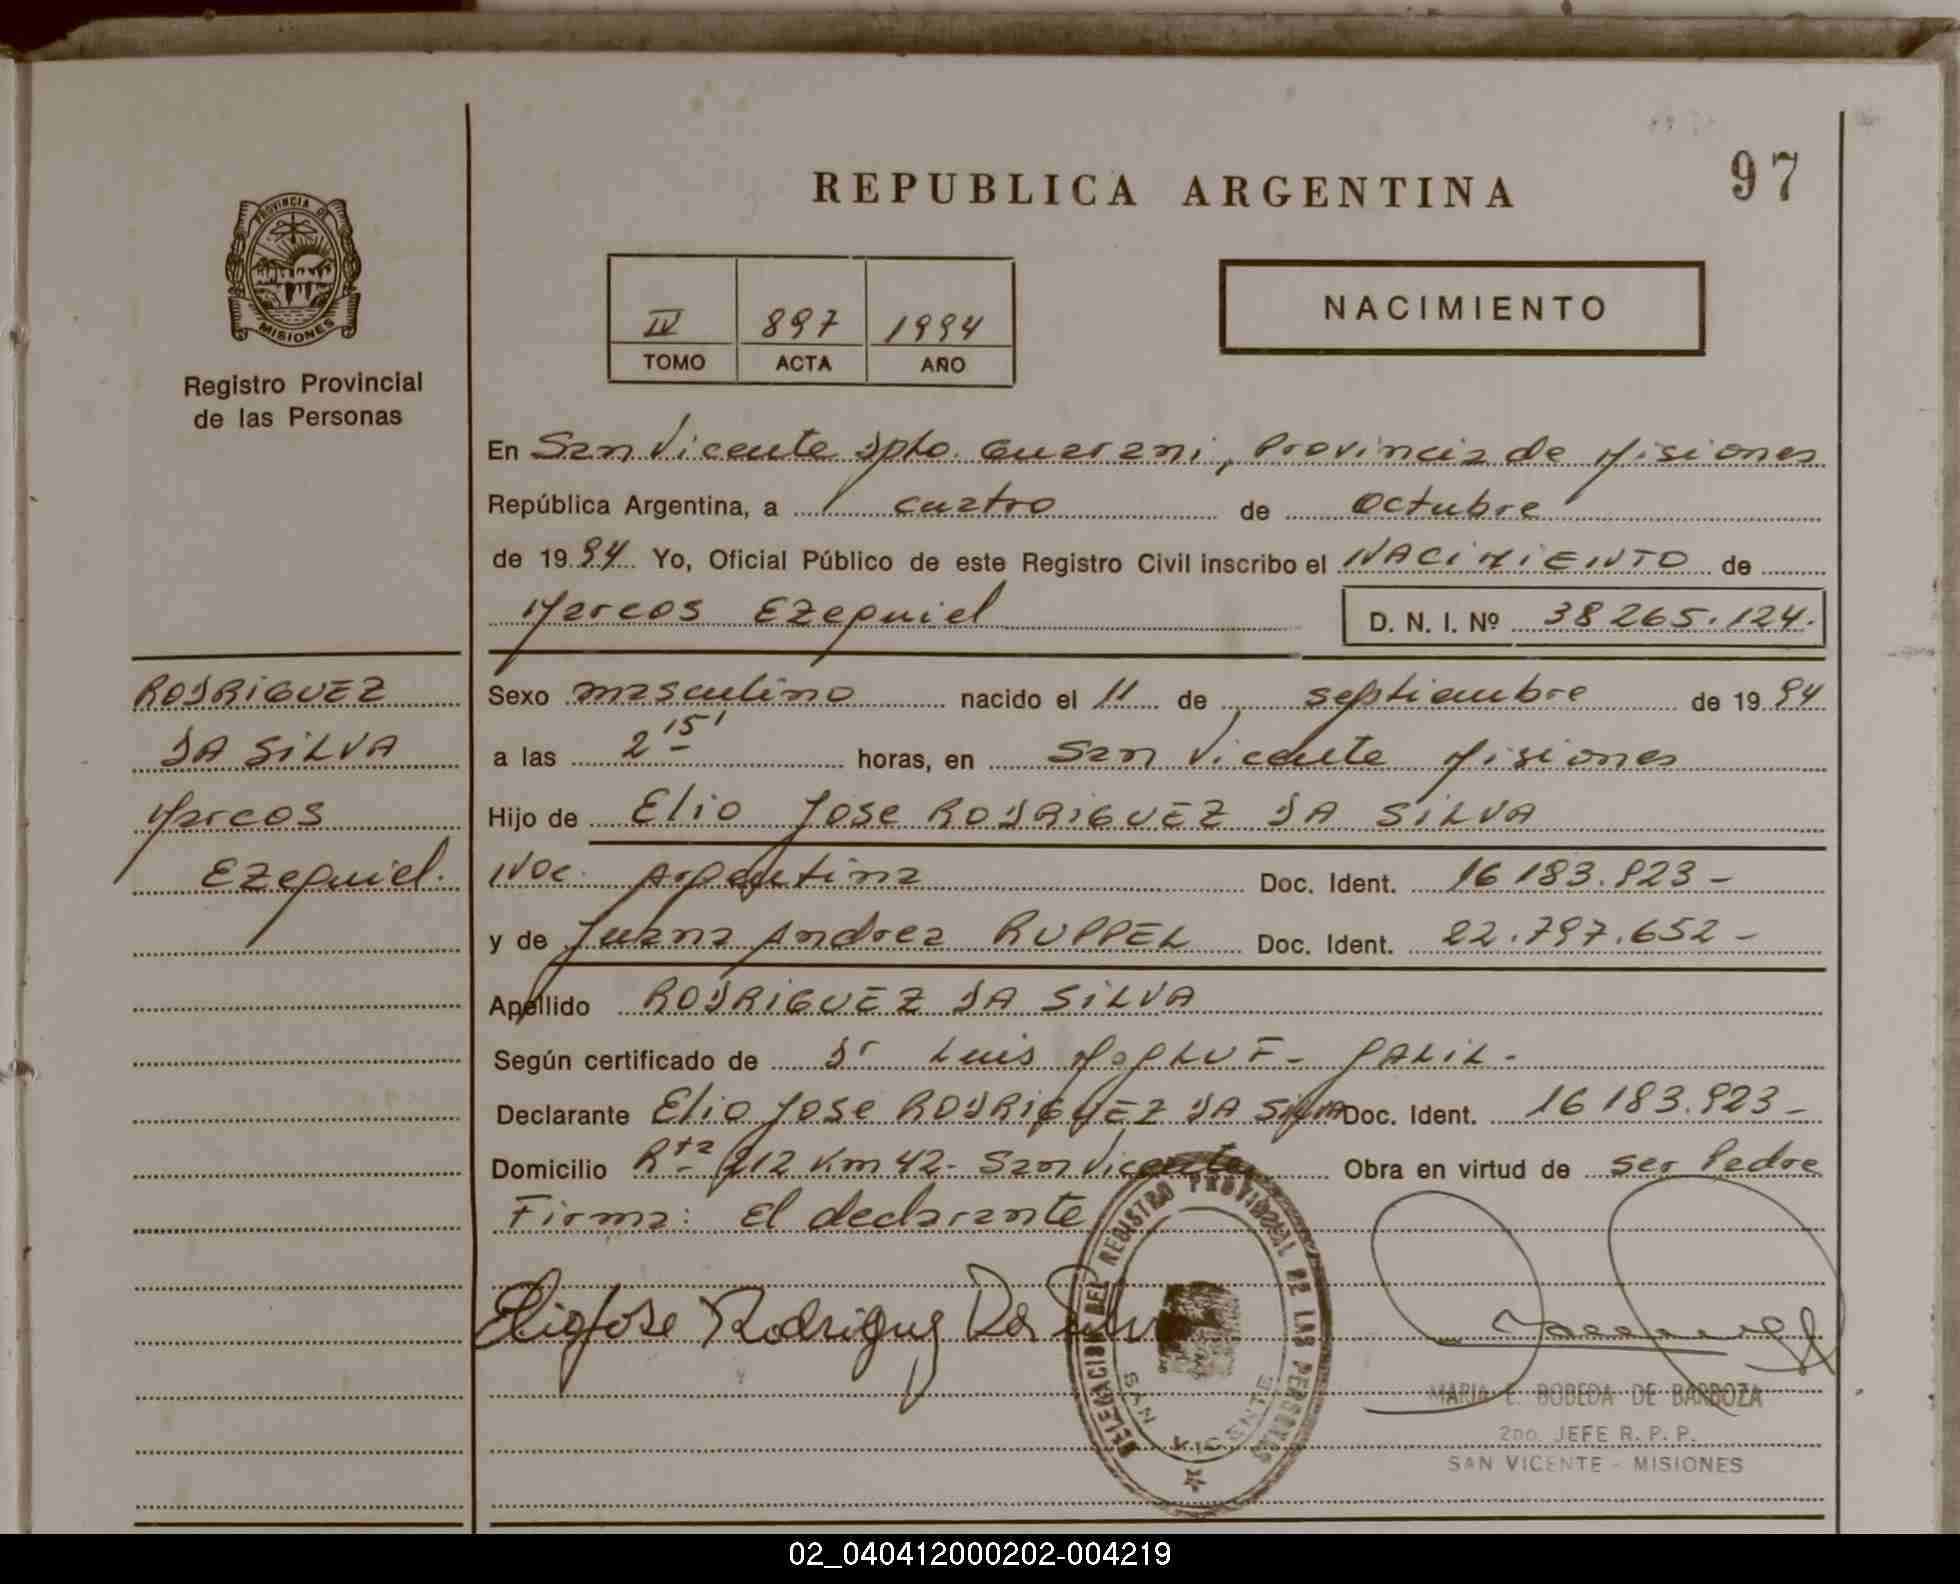 97
REPUBLICA ARGENTINA
PROVINCIA DE
MISIONES
Registro Provincial
de las Personas
IV 897 1994
TOMO ACTA AÑO
NACIMIENTO
En San Vicente Dpto. Guarani, Provincia de Misiones
República Argentina, a cuatro de Octubre
de 1994 Yo, Oficial Público de este Registro Civil inscribo el NACIMIENTO de
Marcos Ezequiel D. N. I. Nº 38265.124.
RODRIGUEZ
DA SILVA
Marcos
Ezequiel.
Sexo masculino nacido el 11 de septiembre de 1994
a las 2 15' horas, en San Vicente Misiones
Hijo de Elio Jose RODRIGUEZ DA SILVA
Nac. Argentina Doc. Ident. 16183.923-
y de Juana Andrea RUPPEL Doc. Ident. 22.797.652-
Apellido RODRIGUEZ DA SILVA
Según certificado de Dr Luis GALIL-
Declarante Elio Jose RODRIGUEZ DA SILVA Doc. Ident. 16183.923-
Domicilio Rta 212 Km 42- San Vicente Obra en virtud de ser Padre
Firma: El declarante
Elio Jose Rodriguez Da Silva
DELEGACION DEL REGISTRO PROVINCIAL DE LAS PERSONAS
SAN VICENTE
MARIA E. BOBEDA DE BARBOZA
2do. JEFE R. P. P.
SAN VICENTE - MISIONES
02_040412000202-004219